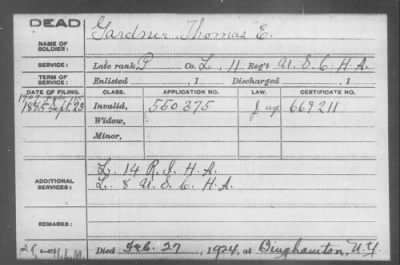 DEAD
Gardner, Thomas E.
NAME OF SOLDIER:
SERVICE: Late rank, P Co. L, 11 Reg't U.S.C.H.A.
TERM OF SERVICE: Enlisted , 1 Discharged , 1
DATE OF FILING. CLASS. APPLICATION NO. LAW. CERTIFICATE NO.
1885 Sept 23 Invalid, 550375 669211
Widow,
Minor,
ADDITIONAL SERVICES:
L. 14 R.I.H.A.
L. 8 U.S.C.H.A.
REMARKS:
Died Feb. 27, 1924, at Binghamton, N.Y.